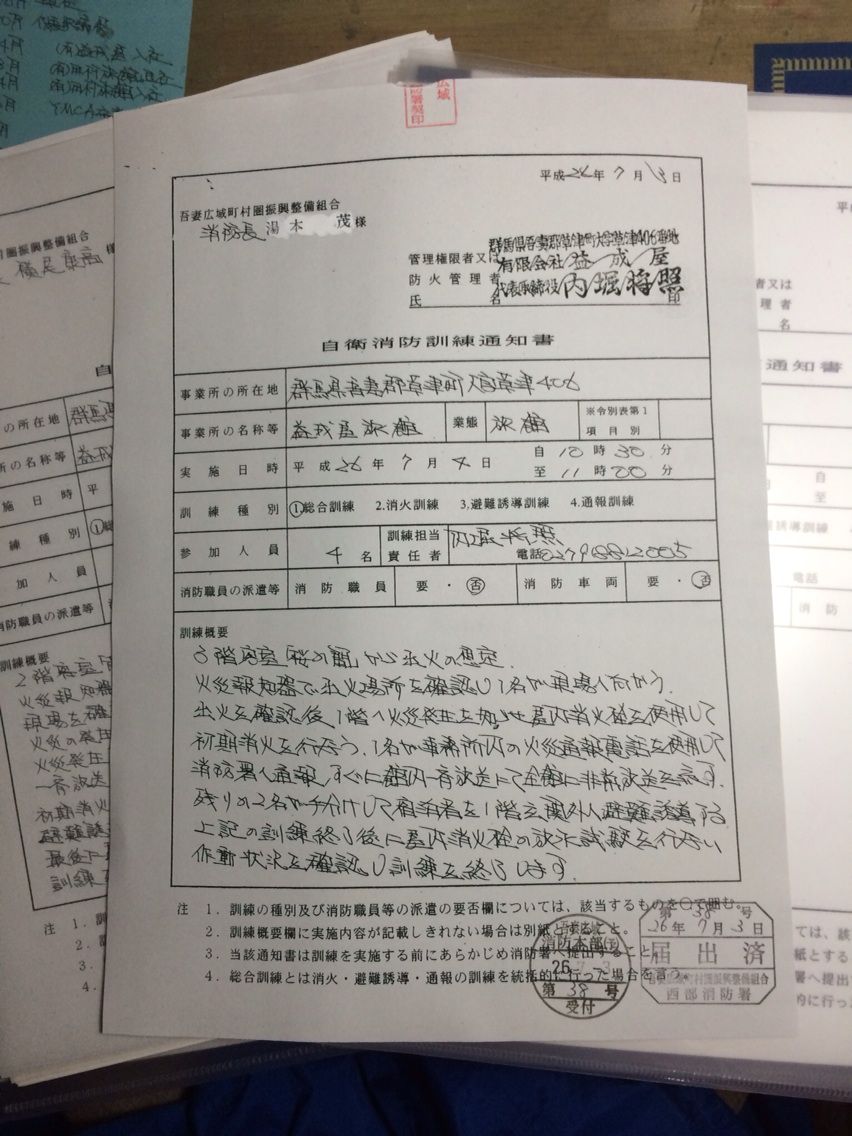 平成26年7月3日
吾妻広域町村圏振興整備組合
消防長 湯本 茂様
群馬県吾妻郡草津町大字草津406番地
管理権限者又は 有限会社益成屋
防火管理者 代表取締役 内堀将照
氏名 印
自衛消防訓練通知書
事業所の所在地 群馬県吾妻郡草津町大字草津406
事業所の名称等 益成屋旅館 業態 旅館 ※令別表第1項目別
実施日時 平成26年7月4日 自10時30分
至11時00分
訓練種別 ①総合訓練 2.消火訓練 3.避難誘導訓練 4.通報訓練
参加人員 4名 訓練担当責任者 内堀将照
電話0279882005
消防職員の派遣等 消防職員 要・否 消防車両 要・否
訓練概要
3階客室「桜の間」から出火の想定.
火災報知器で出火場所を確認し1名が現場へ向かう.
出火を確認後1階へ火災発生を知らせ屋内消火栓を使用して
初期消火を行なう.1名が事務所内の火災通報電話を使用して
消防署へ通報,すぐに館内一斉放送にて全館に非常放送を流す.
残りの2名が手分けして宿泊者を1階玄関外へ避難誘導する
上記の訓練終了後に屋内消火栓の放水試験を行ない
作動状況を確認し訓練を終了します.
注 1.訓練の種別及び消防職員等の派遣の要否欄については、該当するものを○で囲む。
2.訓練概要欄に実施内容が記載しきれない場合は別紙とすること。
3.当該通知書は訓練を実施する前にあらかじめ消防署へ提出すること
4.総合訓練とは消火・避難誘導・通報の訓練を統括的に行った場合を言う。
吾妻広域
消防本部(西)
26.7.3
第38号
受付
第38号
26年7月3日
届出済
吾妻広域町村圏振興整備組合
西部消防署